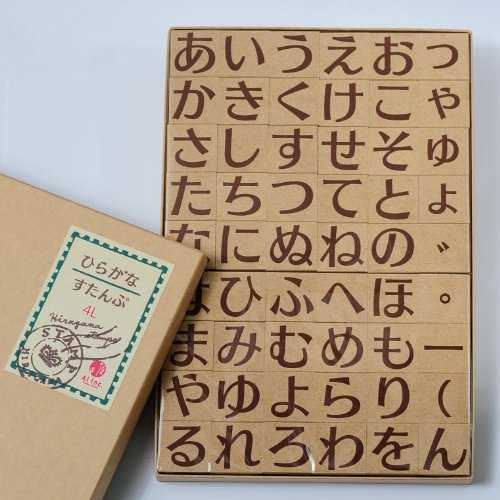 あいうえおっ
かきくけこゃ
さしすせそゅ
たちつてとょ
なにぬねの゛
はひふへほ゜
まみむめもー
やゆよらり（
るれろわをん
ひらがな
すたんぷ
4L
Hiragana stamps
STAMP